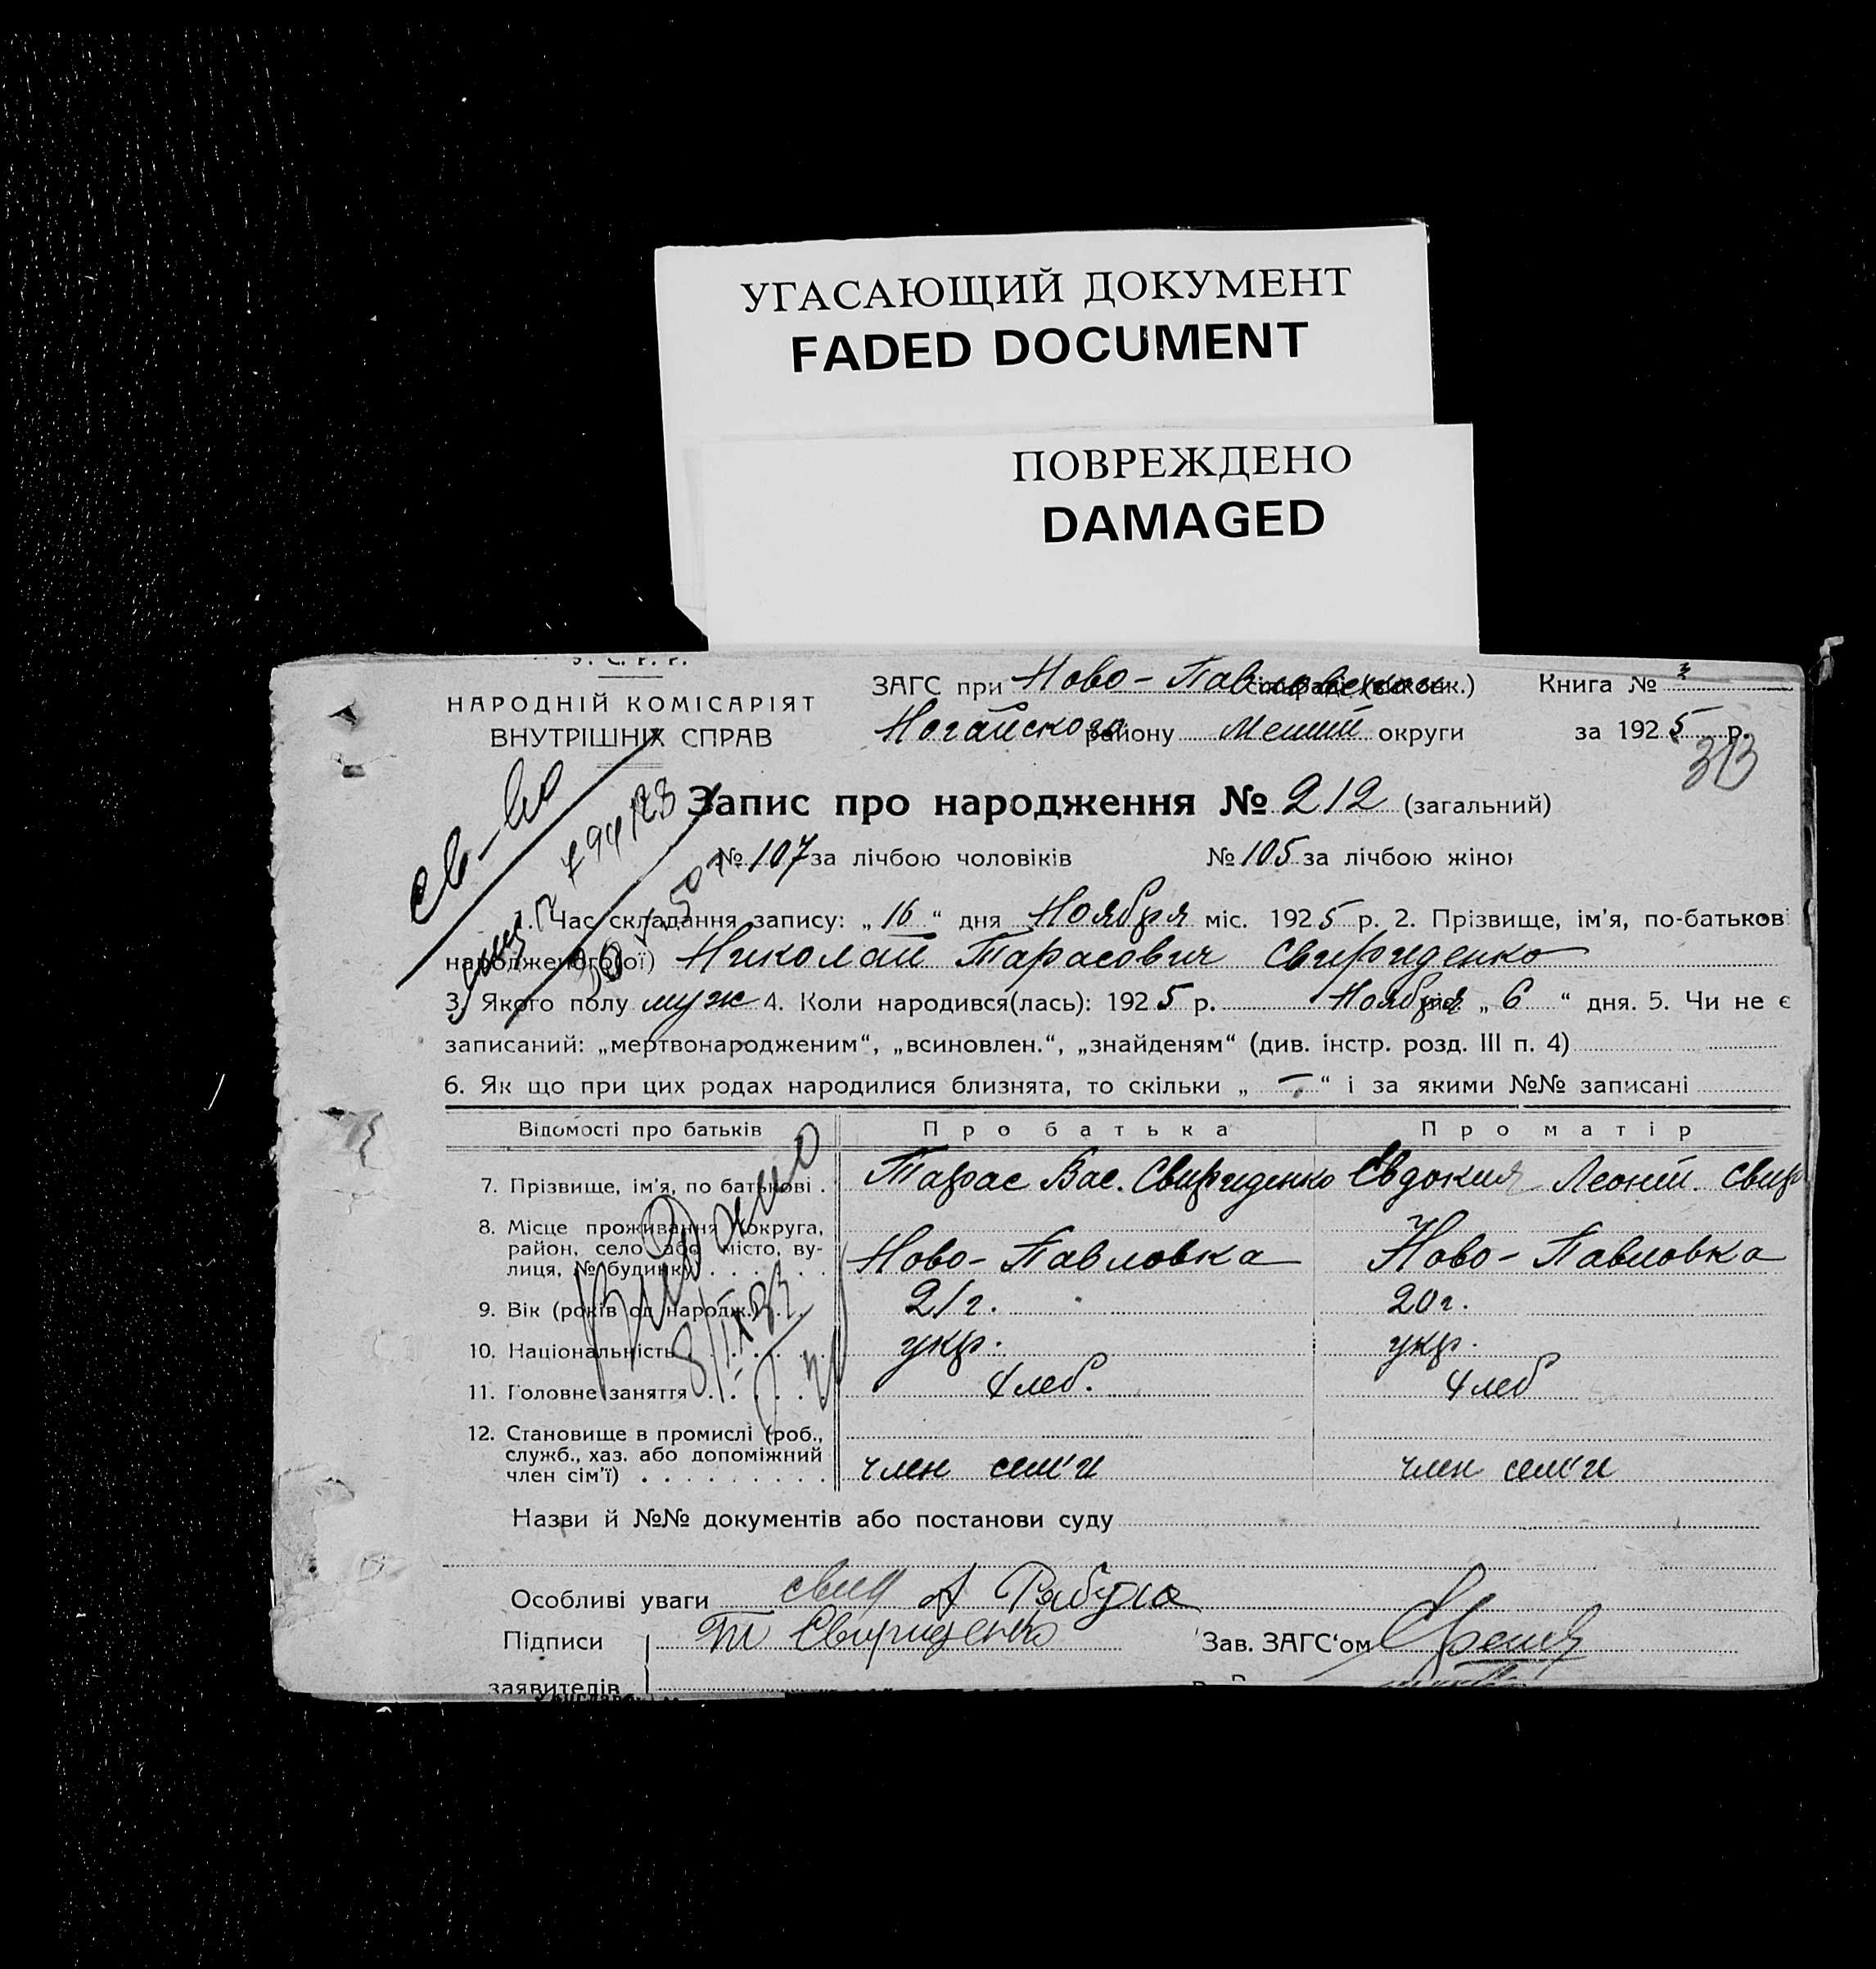 УГАСАЮЩИЙ ДОКУМЕНТ
FADED DOCUMENT
ПОВРЕЖДЕНО
DAMAGED
У. С. Р. Р.
НАРОДНІЙ КОМІСАРІЯТ
ВНУТРІШНІХ СПРАВ
ЗАГС при Ново-Павловском
Книга № 3
Ногайского району Мелит округи
за 1925 р.
313
Запис про народження № 212 (загальний)
№ 107 за лічбою чоловіків № 105 за лічбою жінок
св-во
1. Час складання запису: „16“ дня Ноября міс. 1925 р. 2. Прізвище, ім'я, по-батькові
народженого(ої) Николай Тарасович Свириденко
3. Якого полу муж 4. Коли народився(лась): 1925 р. Ноября „6“ дня. 5. Чи не є
записаний: „мертвонародженим“, „всиновлен.“, „знайденям“ (див. інстр. розд. III п. 4)
6. Як що при цих родах народилися близнята, то скільки „—“ і за якими №№ записані
Відомості про батьків Про батька Про матір
7. Прізвище, ім'я, по батькові . Тарас Вас. Свириденко Евдокия Леонт. Свир
8. Місце проживання (округа,
район, село або місто, ву-
лиця, № будинку) Ново-Павловка Ново-Павловка
9. Вік (років од народж.) 21 г. 20 г.
10. Національність укр. укр.
11. Головне заняття хлеб. хлеб
12. Становище в промислі (роб.,
служб., хаз. або допоміжний
член сім'ї) член сем'и член сем'и
Видано
8/IX 33
Назви й №№ документів або постанови суду
Особливі уваги свид А Рябуха
Підписи Т Свириденко Зав. ЗАГС'ом
заявителів